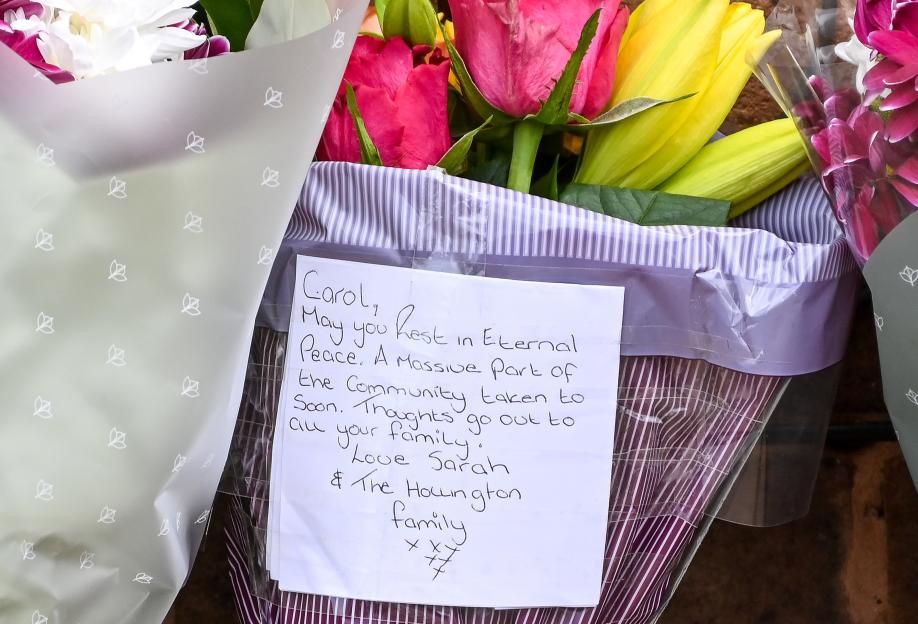 Carol,
May you Rest in Eternal
Peace. A Massive Part of
the Community taken to
Soon. Thoughts go out to
all your family.
Love Sarah
& The Howington
family
x x x
x x
x